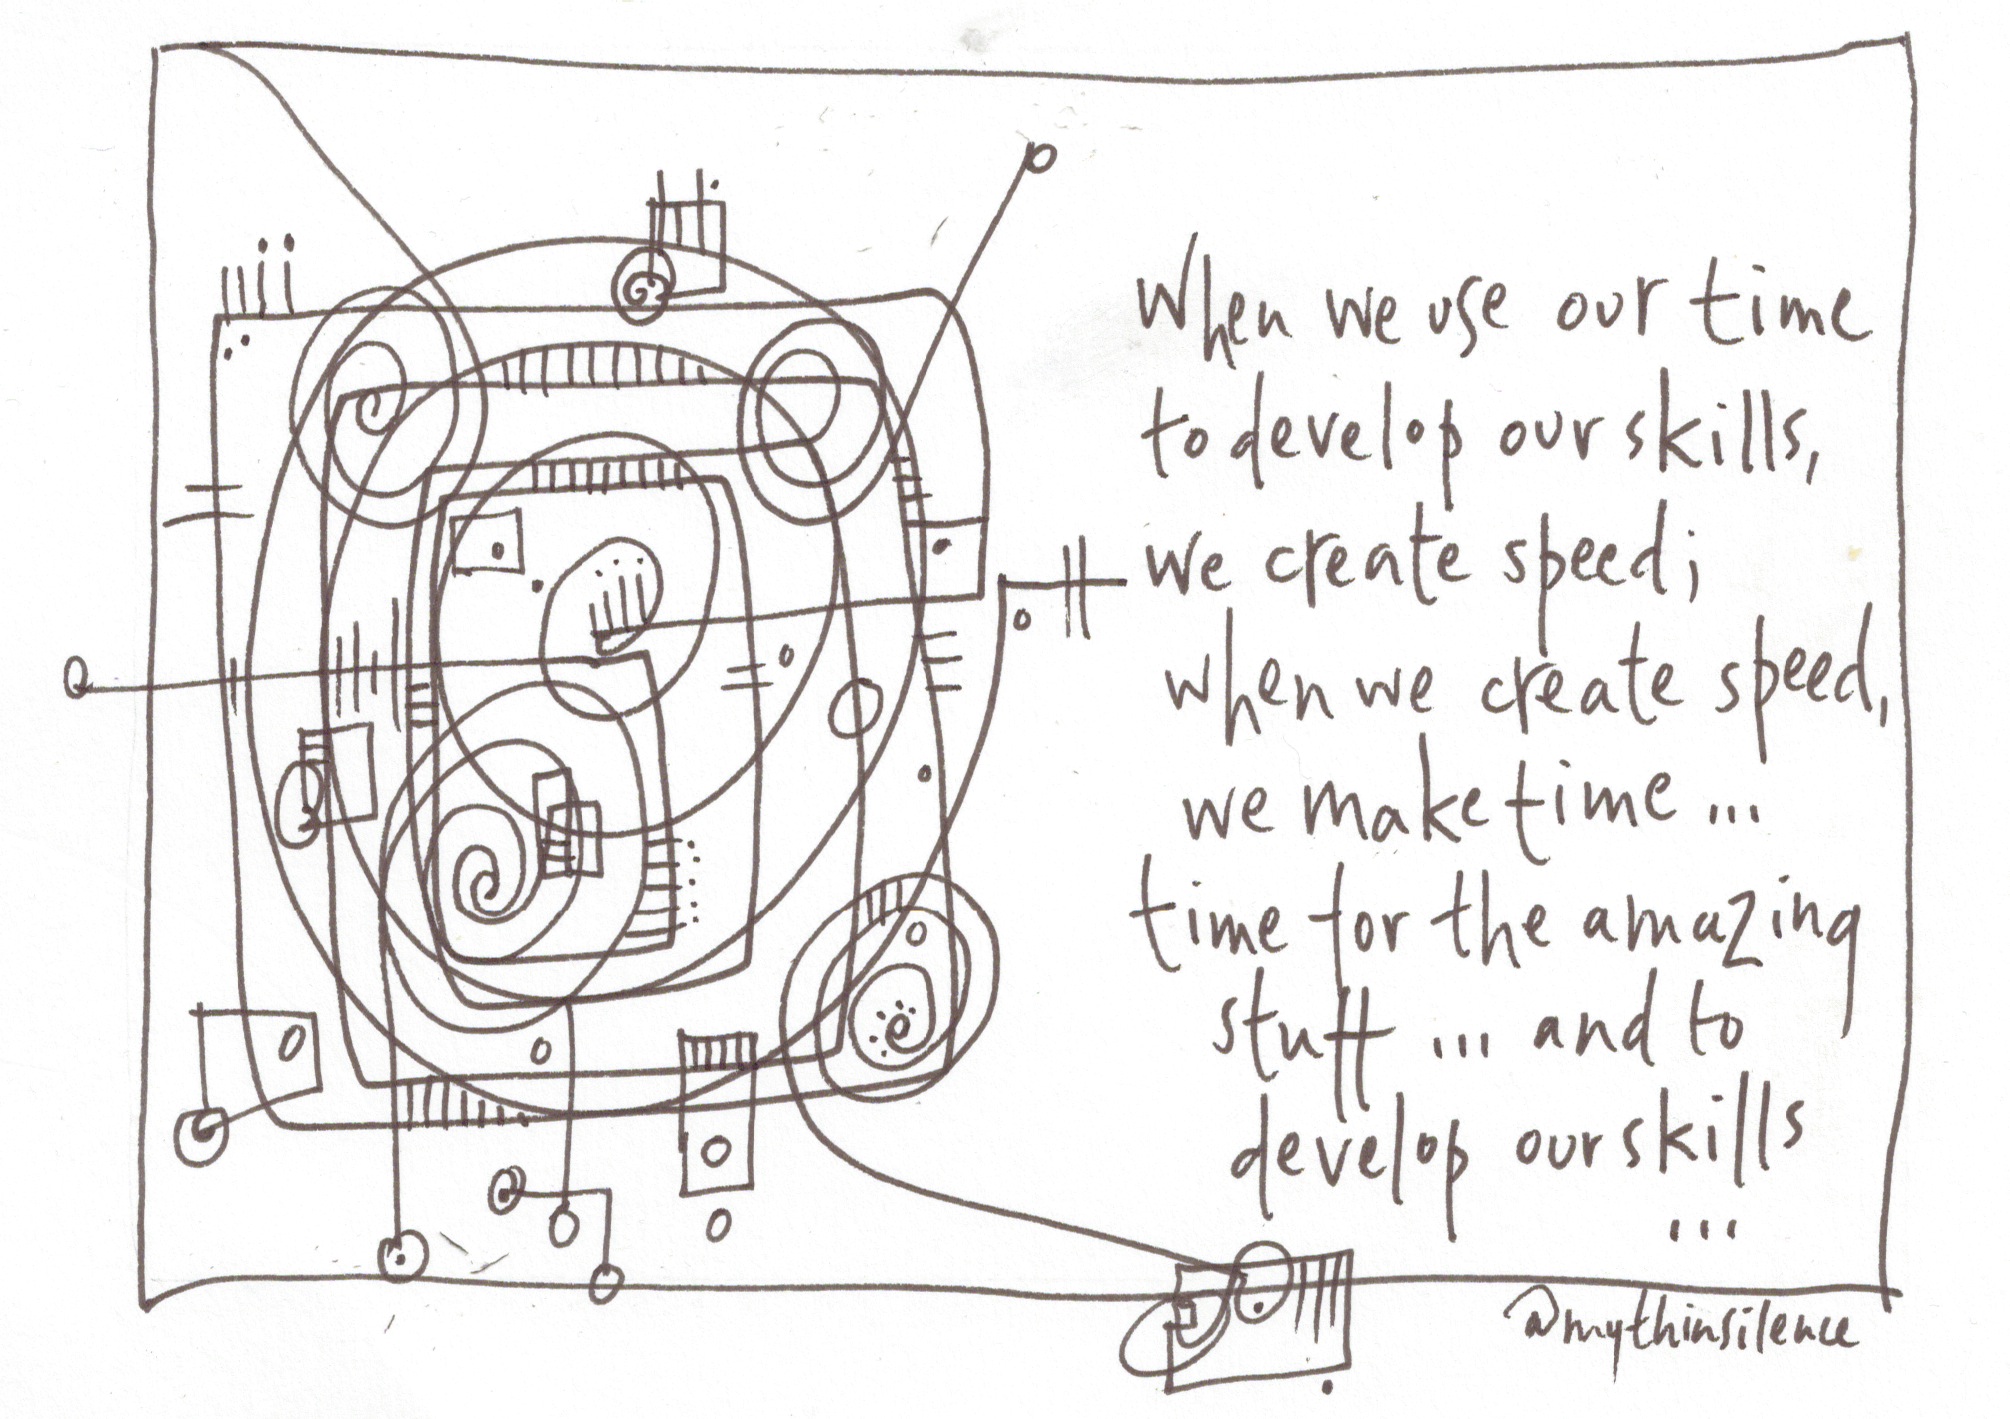 When we use our time
to develop our skills,
we create speed;
when we create speed,
we make time ...
time for the amazing
stuff ... and to
develop our skills
...
@mythinsilence